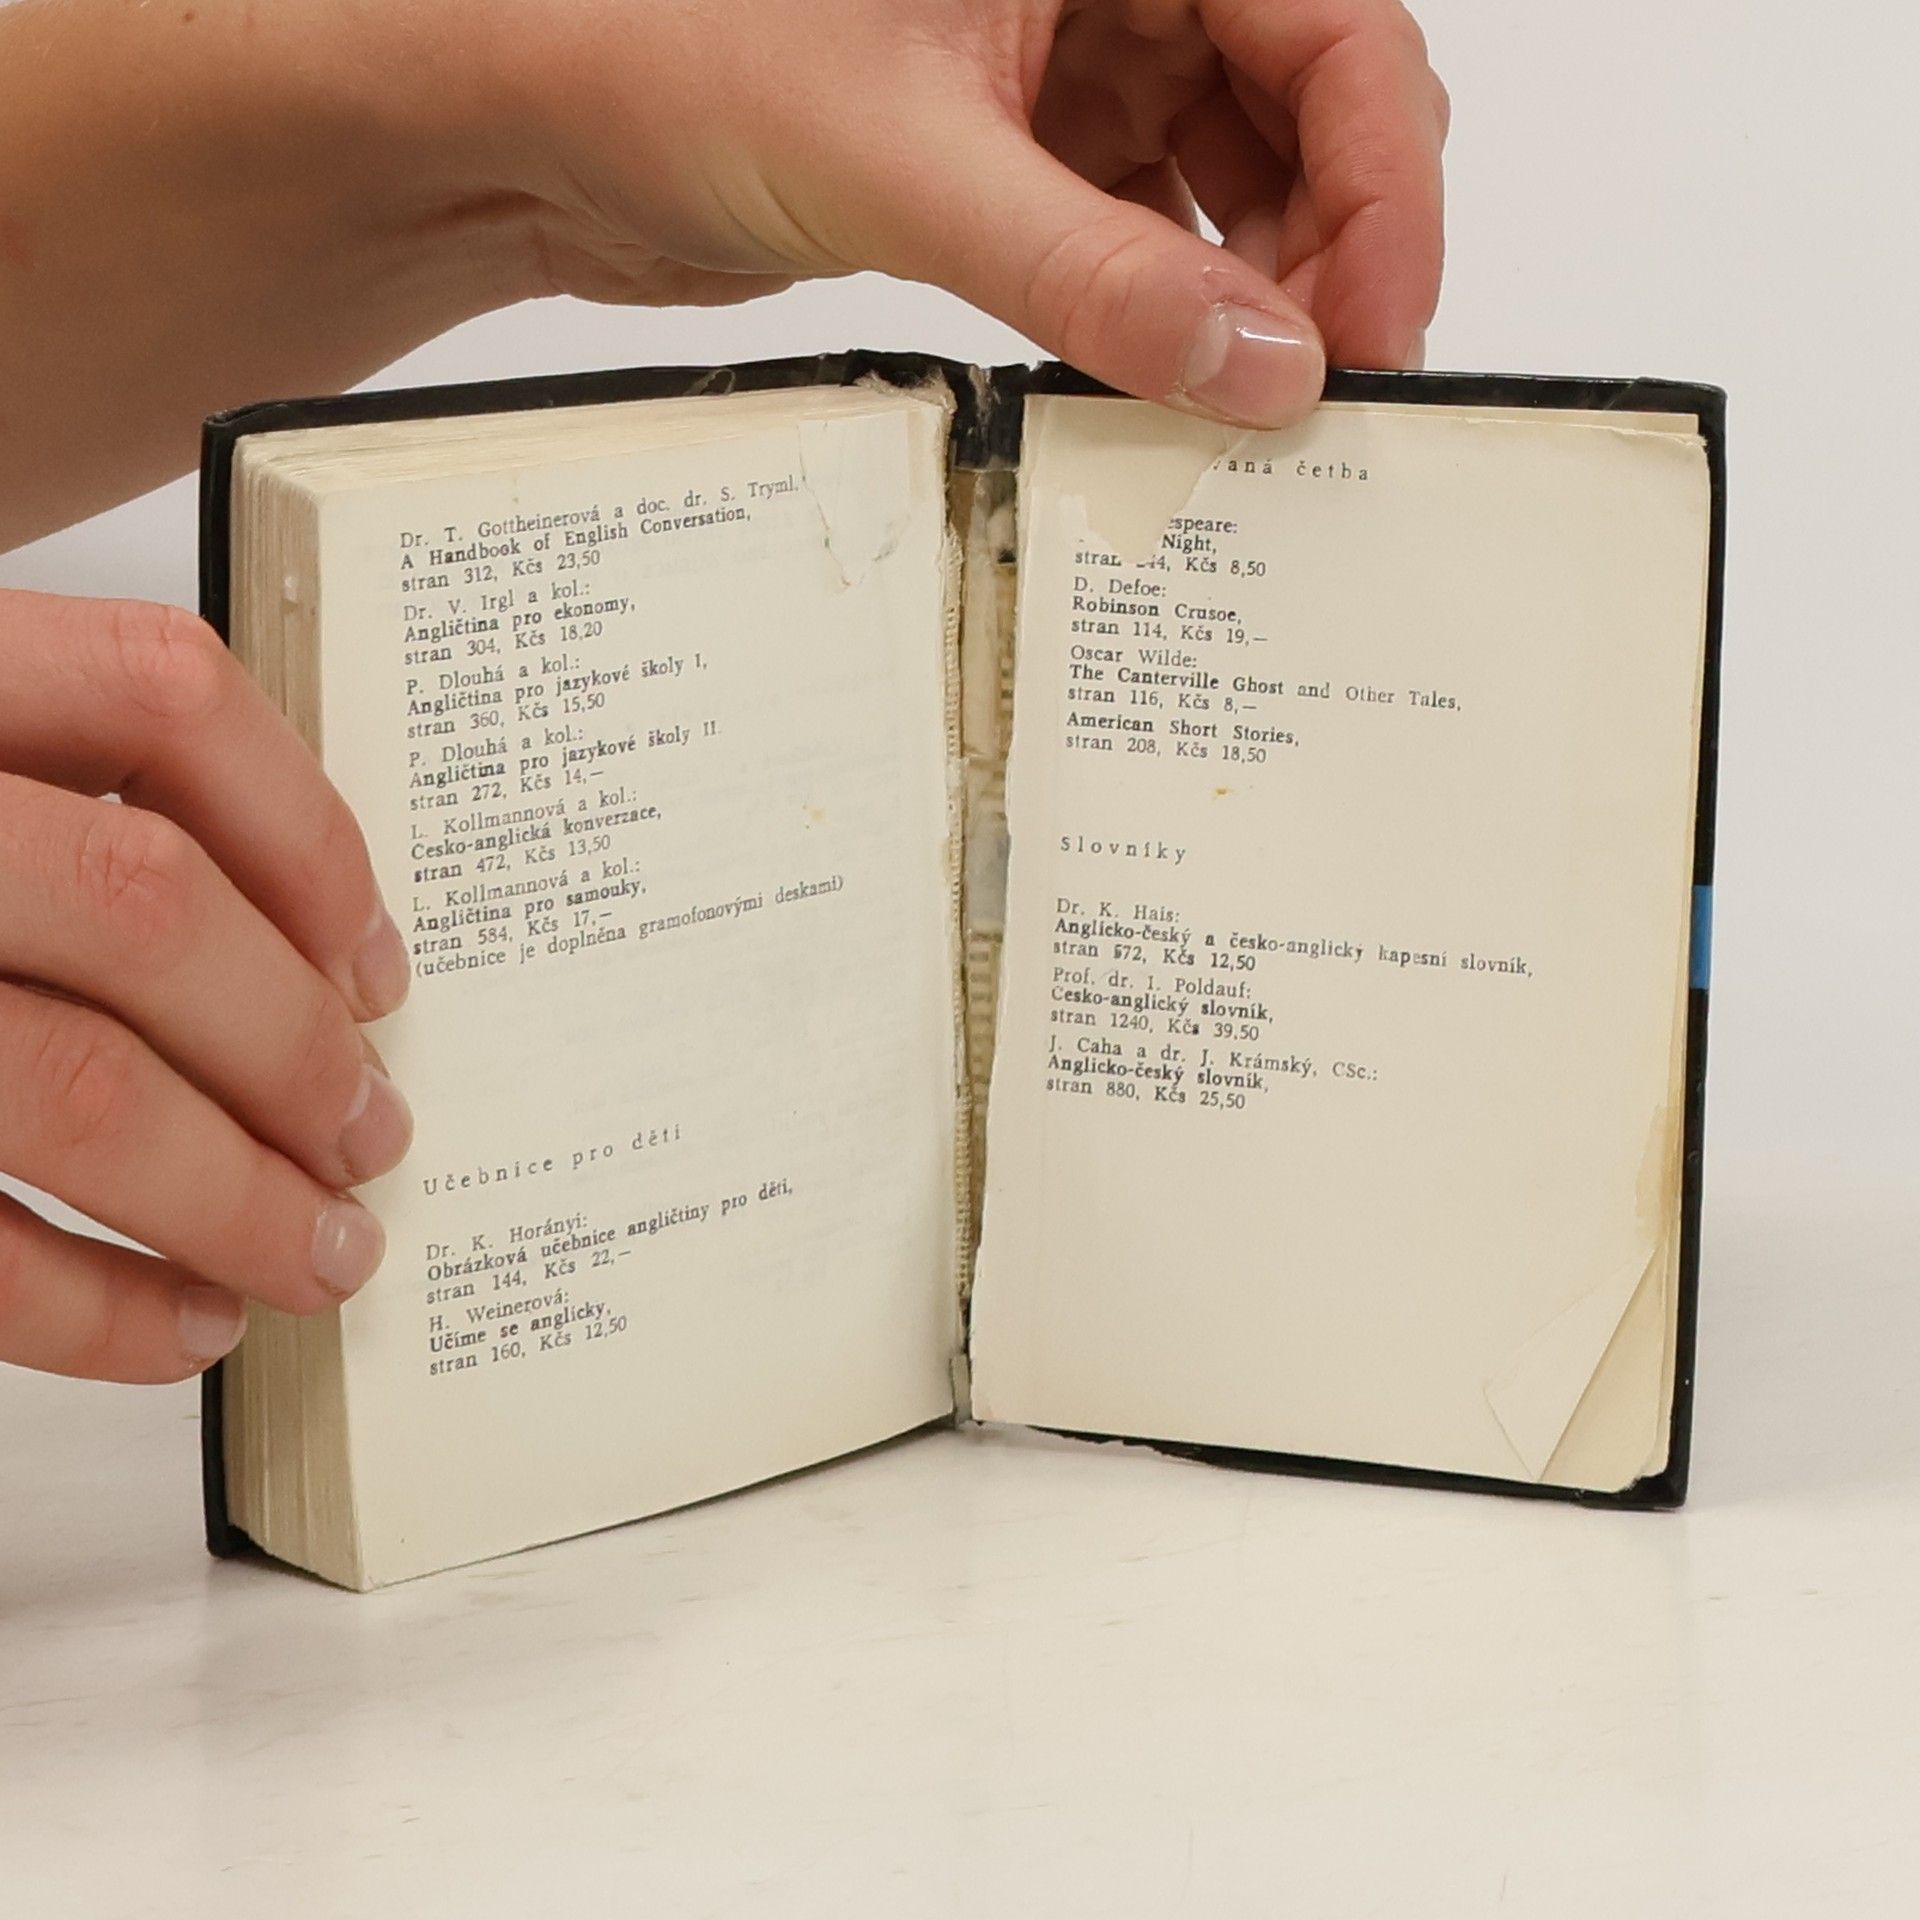 Dr. T. Gottheinerová a doc. dr. S. Tryml.
A Handbook of English Conversation,
stran 312, Kčs 23,50
Dr. V. Irgl a kol.:
Angličtina pro ekonomy,
stran 304, Kčs 18,20
P. Dlouhá a kol.:
Angličtina pro jazykové školy I,
stran 360, Kčs 15,50
P. Dlouhá a kol.:
Angličtina pro jazykové školy II.
stran 272, Kčs 14,—
L. Kollmannová a kol.:
Česko-anglická konverzace,
stran 472, Kčs 13,50
L. Kollmannová a kol.:
Angličtina pro samouky,
stran 584, Kčs 17,—
(učebnice je doplněna gramofonovými deskami)
Učebnice pro děti
Dr. K. Horányi:
Obrázková učebnice angličtiny pro děti,
stran 144, Kčs 22,—
H. Weinerová:
Učíme se anglicky,
stran 160, Kčs 12,50
vaná četba
espeare:
Night,
stran 44, Kčs 8,50
D. Defoe:
Robinson Crusoe,
stran 114, Kčs 19,—
Oscar Wilde:
The Canterville Ghost and Other Tales,
stran 116, Kčs 8,—
American Short Stories,
stran 208, Kčs 18,50
Slovníky
Dr. K. Hais:
Anglicko-český a česko-anglický kapesní slovník,
stran 572, Kčs 12,50
Prof. dr. I. Poldauf:
Česko-anglický slovník,
stran 1240, Kčs 39,50
J. Caha a dr. J. Krámský, CSc.:
Anglicko-český slovník,
stran 880, Kčs 25,50